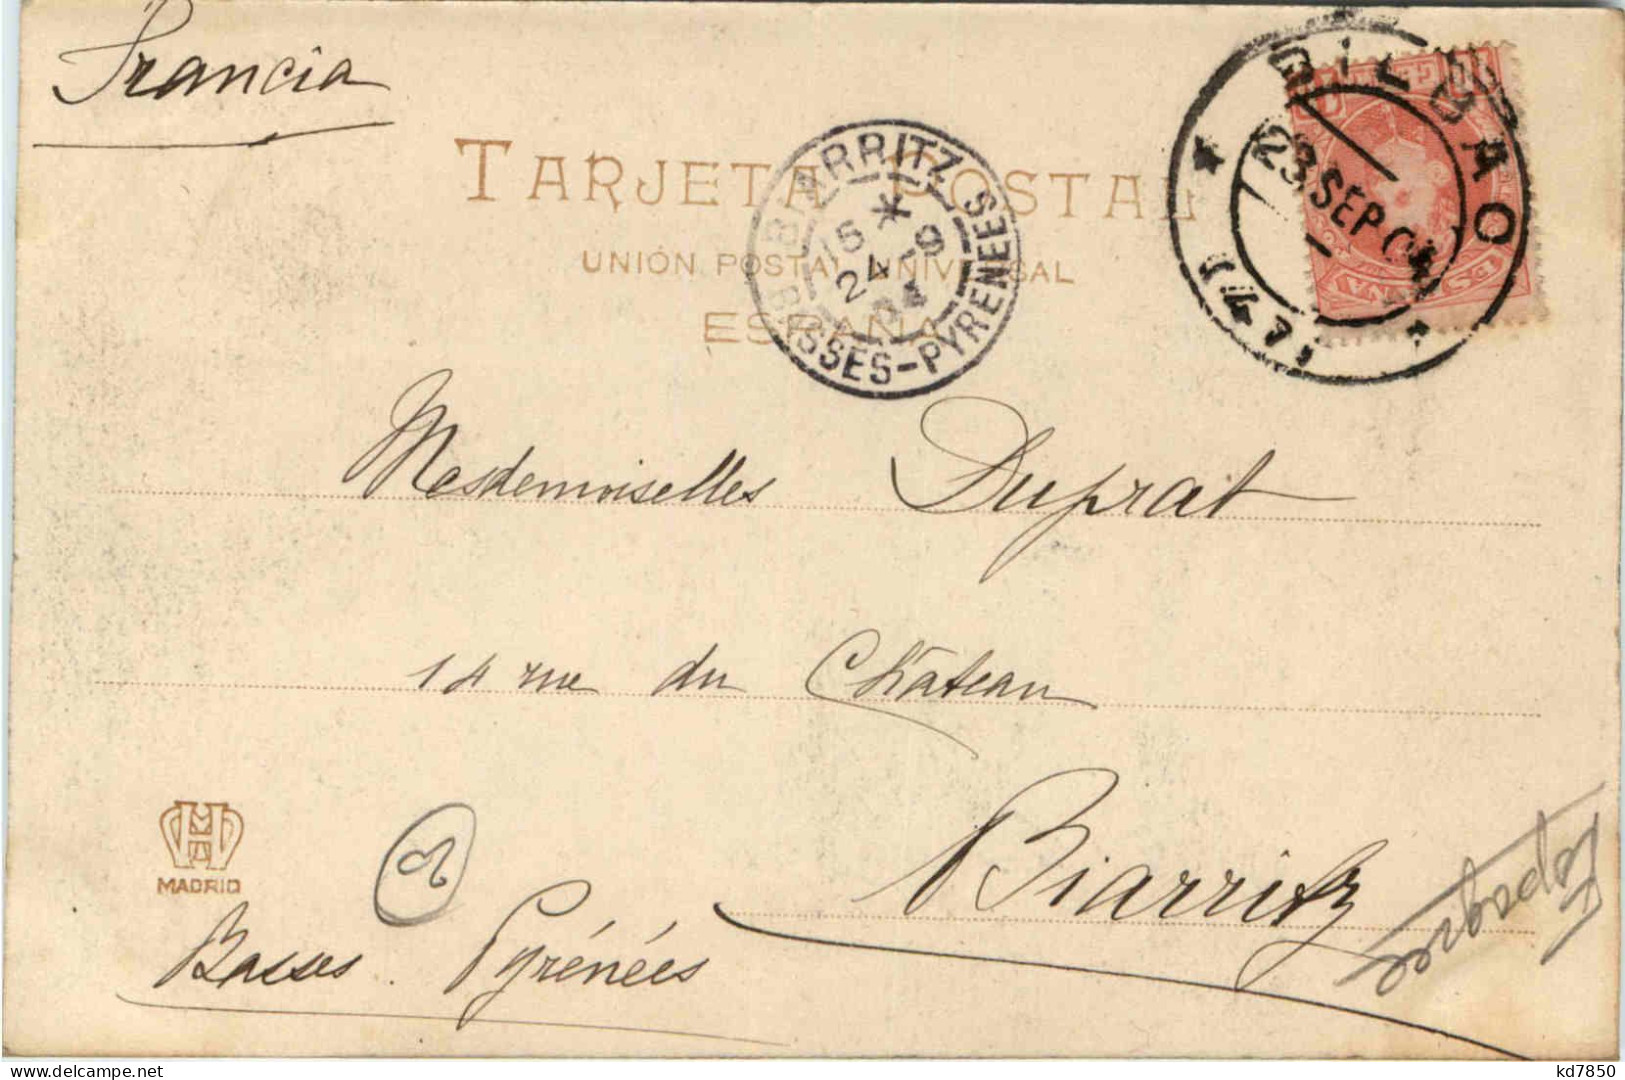 Francia
TARJETA POSTAL
UNIÓN POSTAL UNIVERSAL
ESPAÑA
BIARRITZ
BSSES-PYRENEES
15 * 24 -9 04
BILBAO
23 SEP 04
(47)
Mesdemoiselles Duprat
14 rue du Château
Biarritz
Basses Pyrénées
MADRID
kd7850